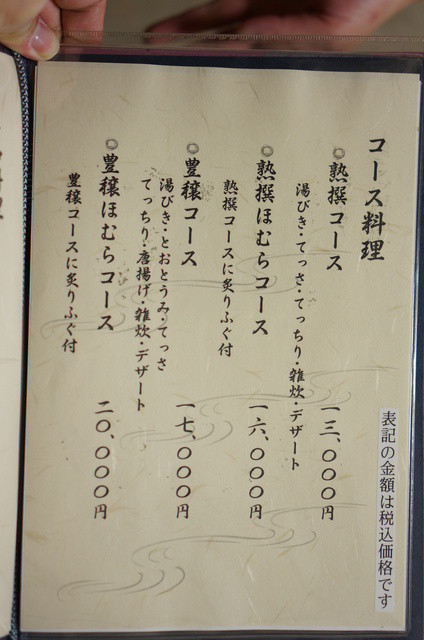 コース料理
◎熟撰コース 一三、〇〇〇円
湯びき・てっさ・てっちり・雑炊・デザート
◎熟撰ほむらコース 一六、〇〇〇円
熟撰コースに炙りふぐ付
◎豊穣コース 一七、〇〇〇円
湯びき・とおとうみ・てっさ
てっちり・唐揚げ・雑炊・デザート
◎豊穣ほむらコース 二〇、〇〇〇円
豊穣コースに炙りふぐ付
表記の金額は税込価格です